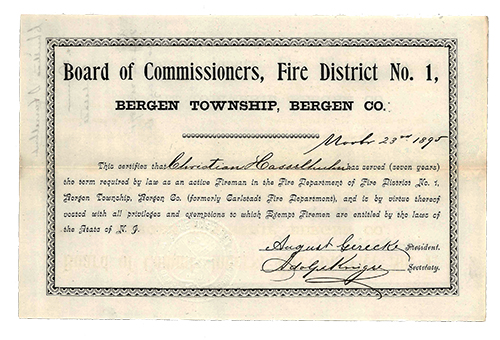 Board of Commissioners, Fire District No. 1,
BERGEN TOWNSHIP, BERGEN CO.
Novbr 23rd 1895
This certifies that Christian Hasselhuhn has served (seven years)
the term required by law as an active Fireman in the Fire Department of Fire District No. 1,
Bergen Township, Bergen Co. (formerly Carlstadt Fire Department), and is by virtue thereof
vested with all privileges and exemptions to which Exempt Firemen are entitled by the laws of
the State of N. J.
August Gerecke President.
Secretary.